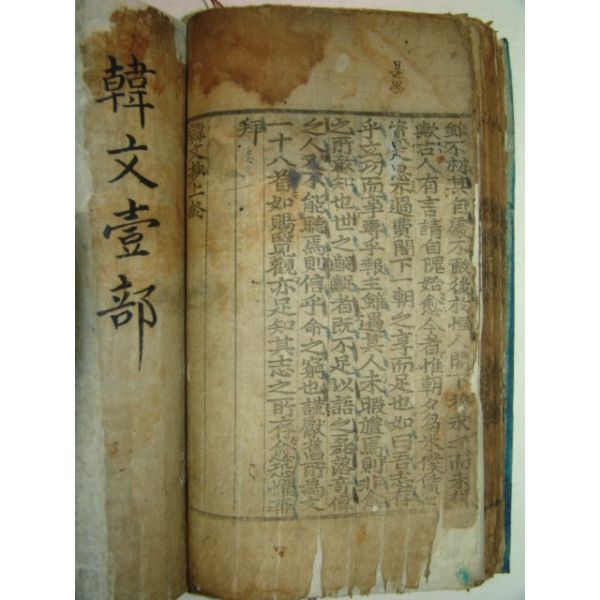 雖不材其自處不敢後於恒人閣下將求之而未得
歟古人有言請自隗始愈今者惟朝夕芻米僕賃
資是急不過費閣下一朝之享而足也如曰吾志存
乎立功而事專乎報主雖遇其人未暇禮焉則非愈
之所敢知也世之齪齪者既不足以語之磊落奇偉
之人又不能聽焉則信乎命之窮也謹獻舊所為文
一十八首如賜覽觀亦足知其志之所存愈恐懼再
拜
韓文抄上終
韓文壹部